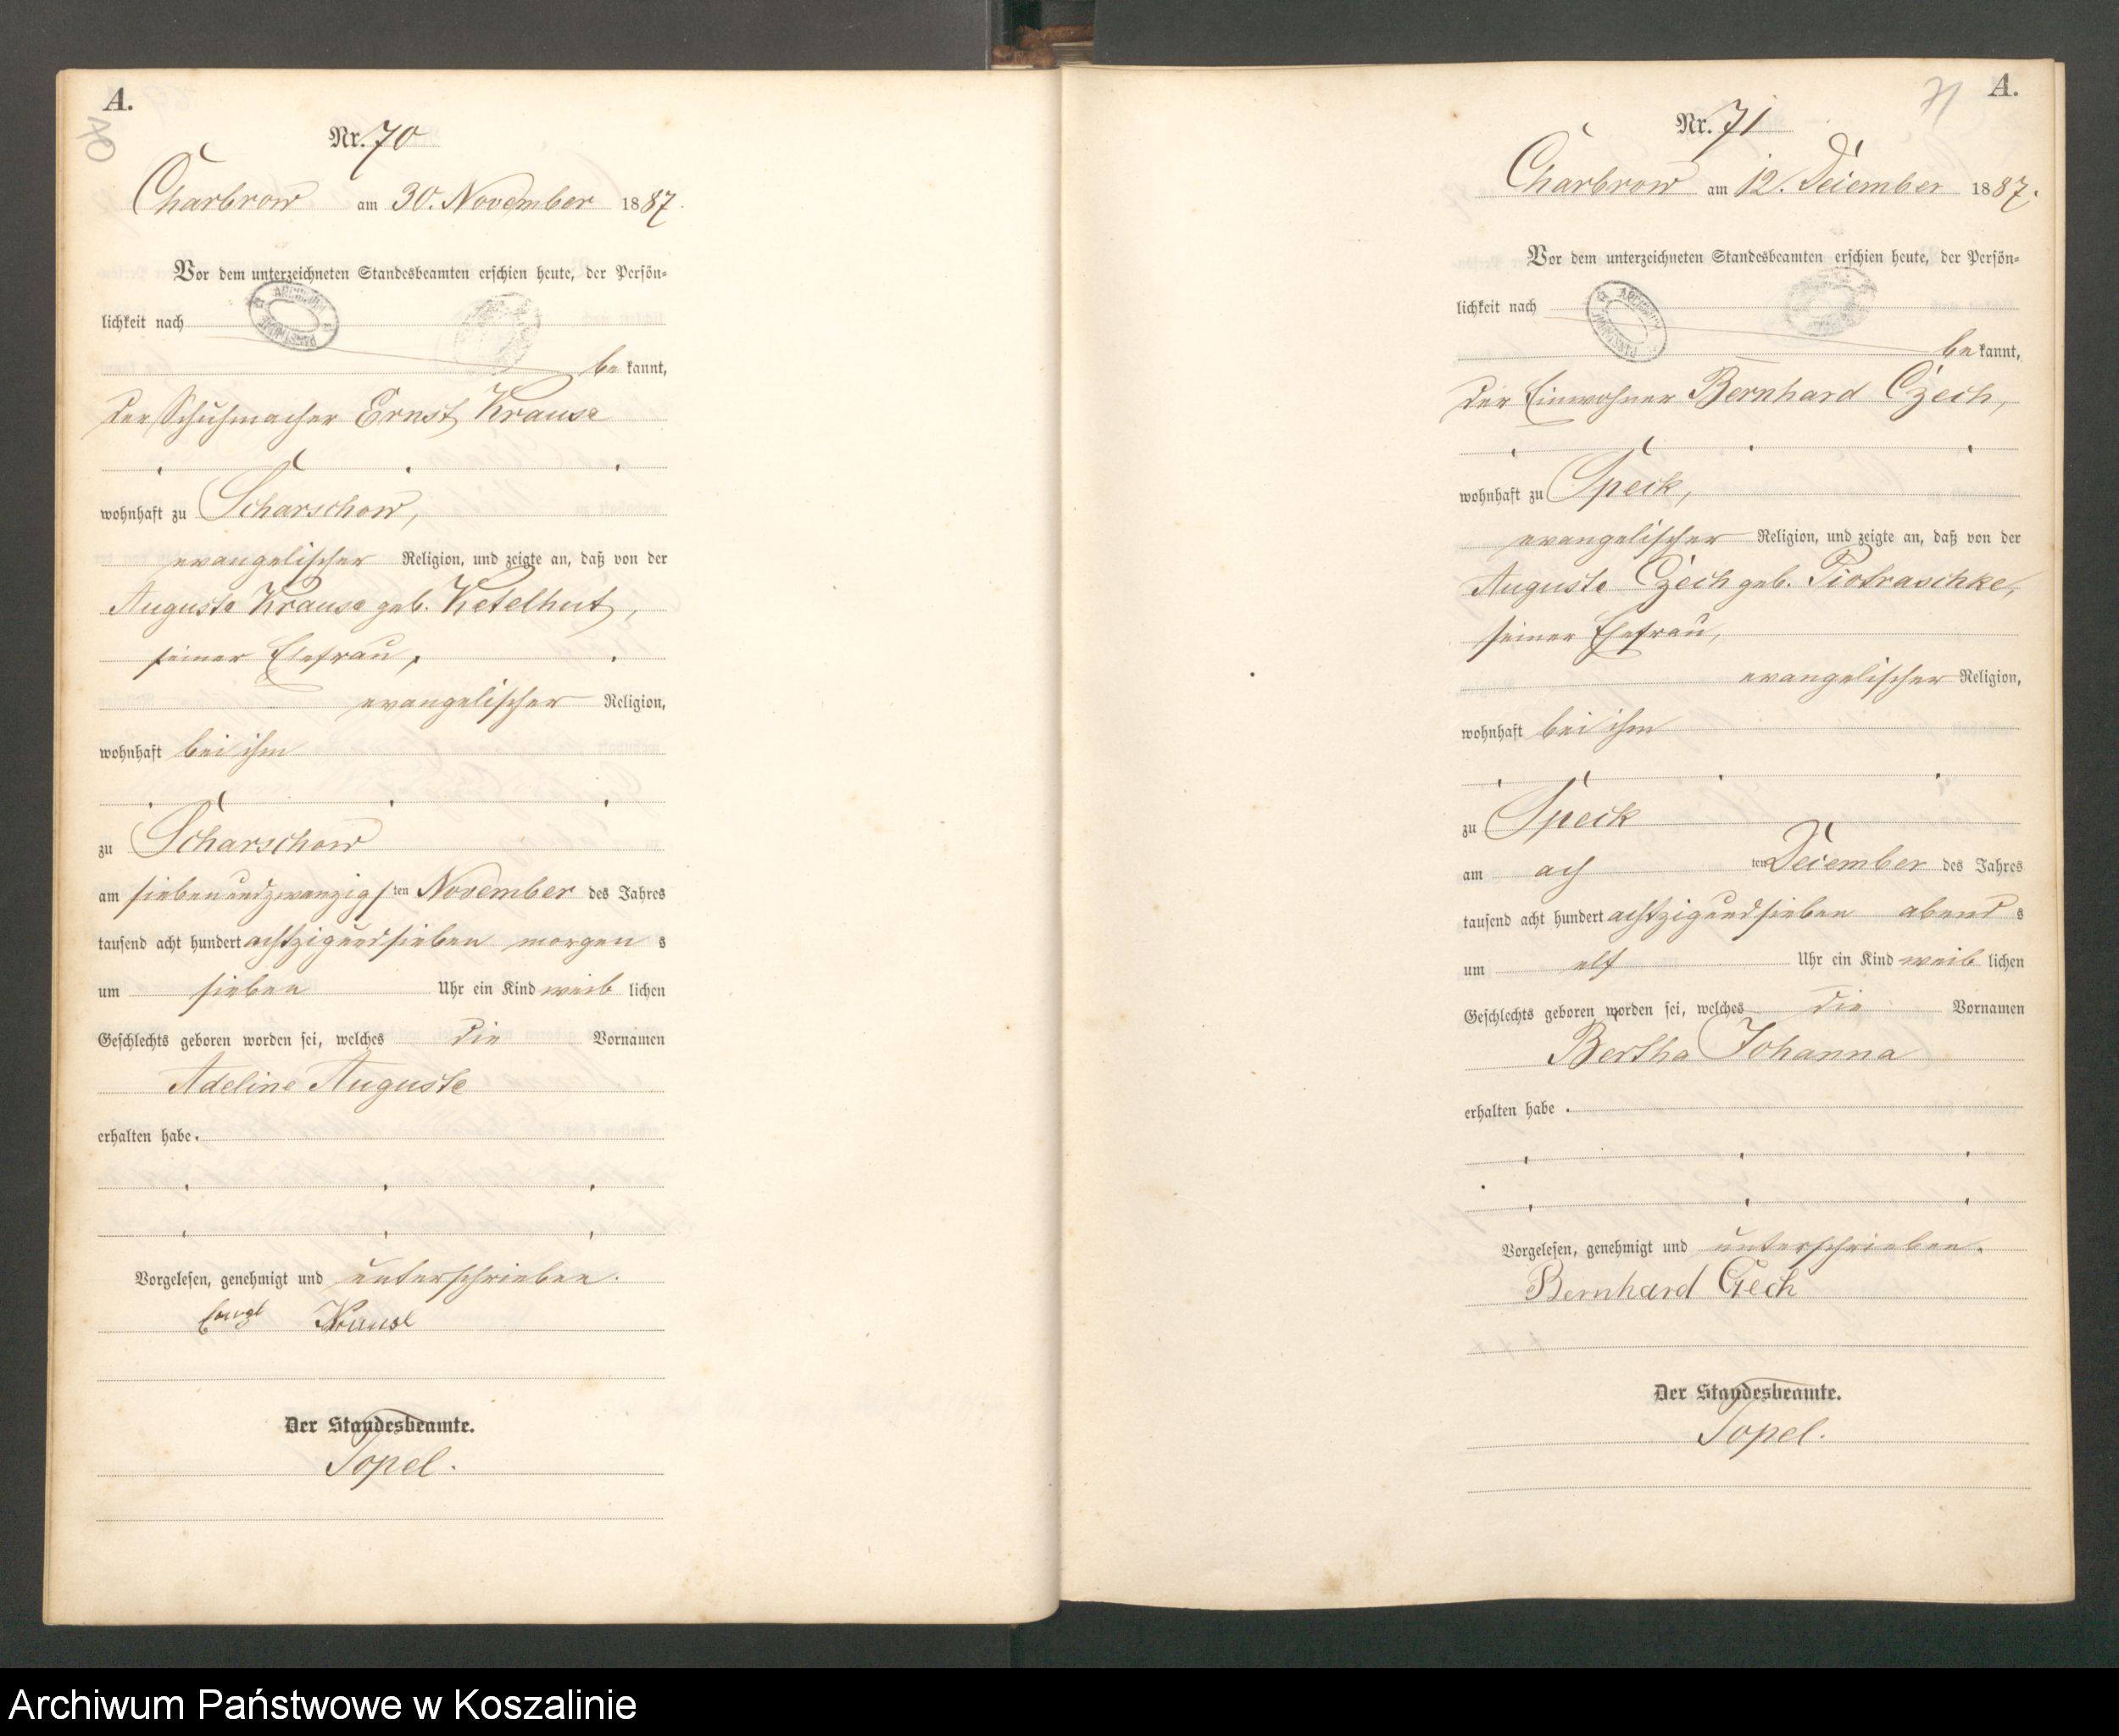 A.
70
Nr. 70
Charbrow am 30. November 1887.
Vor dem unterzeichneten Standesbeamten erschien heute, der Persön-
lichkeit nach
be kannt,
der Schuhmacher Ernst Krause
wohnhaft zu Scharschow,
evangelischer Religion, und zeigte an, daß von der
Auguste Krause geb. Ketelhut,
seiner Ehefrau,
evangelischer Religion,
wohnhaft bei ihm
zu Scharschow
am siebenundzwanzigsten November des Jahres
tausend acht hundert achtzigundsieben morgens
um sieben Uhr ein Kind weiblichen
Geschlechts geboren worden sei, welches die Vornamen
Adeline Auguste
erhalten habe.
Vorgelesen, genehmigt und unterschrieben.
Krause
Der Standesbeamte.
Topel.
71 A.
Nr. 71
Charbrow am 12. Deiember 1887.
Vor dem unterzeichneten Standesbeamten erschien heute, der Persön-
lichkeit nach
be kannt,
der Einwohner Bernhard Czech,
wohnhaft zu Speck,
evangelischer Religion, und zeigte an, daß von der
Auguste Czech geb. Piotraschke,
seiner Ehefrau,
evangelischer Religion,
wohnhaft bei ihm
zu Speck
am ach ten Deiember des Jahres
tausend acht hundert achtzigundsieben abends
um elf Uhr ein Kind weiblichen
Geschlechts geboren worden sei, welches die Vornamen
Bertha Johanna
erhalten habe.
Vorgelesen, genehmigt und unterschrieben.
Bernhard Czech
Der Standesbeamte.
Topel.
Archiwum Państwowe w Koszalinie